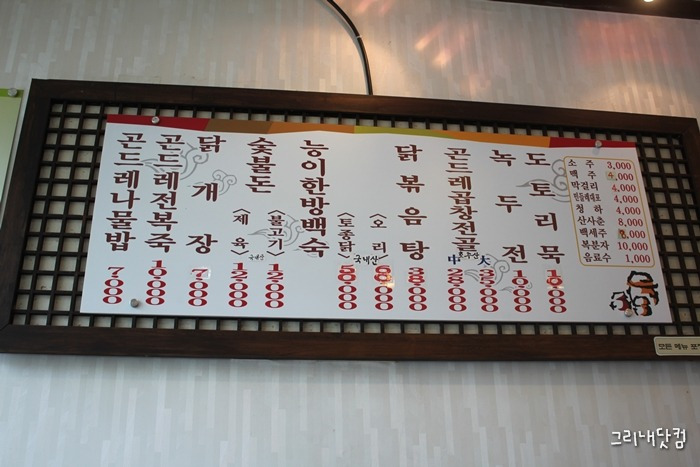 곤드레나물밥 7000
곤드레전복죽 10000
닭개장 7000
숯불돈
<제육> 12000
<불고기> 국내산 12000
능이한방백숙
<토종닭> 국내산
<오리>
닭볶음탕
곤드레곱창전골
中
大
녹두전 10000
도토리묵 10000
소주 3,000
맥주 4,000
막걸리 4,000
4,000
청하 4,000
산사춘 8,000
백세주
복분자 10,000
음료수 1,000
모든 메뉴 포장
그리내닷컴